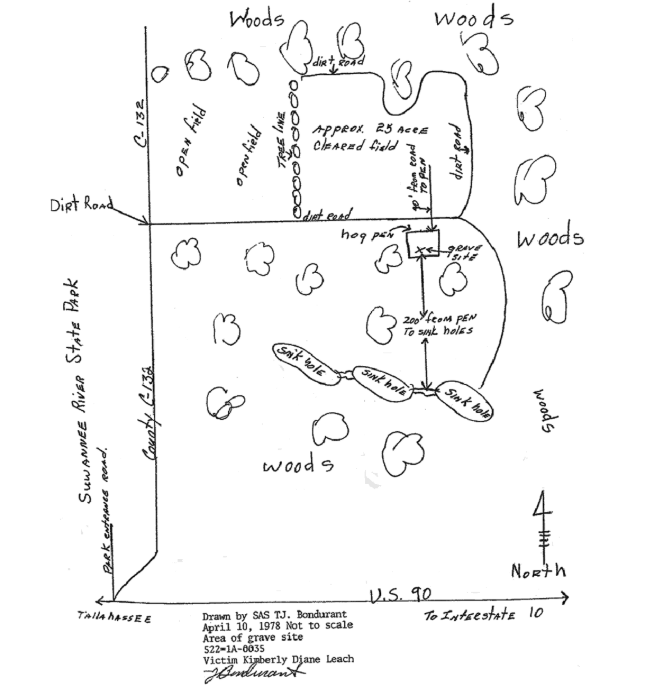 Woods
Woods
dirt road
C-132
open field
open field
TREE LINE
APPROX. 25 ACRE
CLEARED field
40' from road
TO PEN
dirt road
Dirt Road
dirt road
hog pen
grave
site
X
Woods
200' from PEN
To sink holes
Sink hole
Sink hole
Sink hole
Suwannee River State Park
County C-132
Park entrance road.
woods
woods
North
U.S. 90
Tallahassee
To Interstate 10
Drawn by SAS TJ. Bondurant
April 10, 1978 Not to scale
Area of grave site
S22-1A-0035
Victim Kimberly Diane Leach
TJBondurant